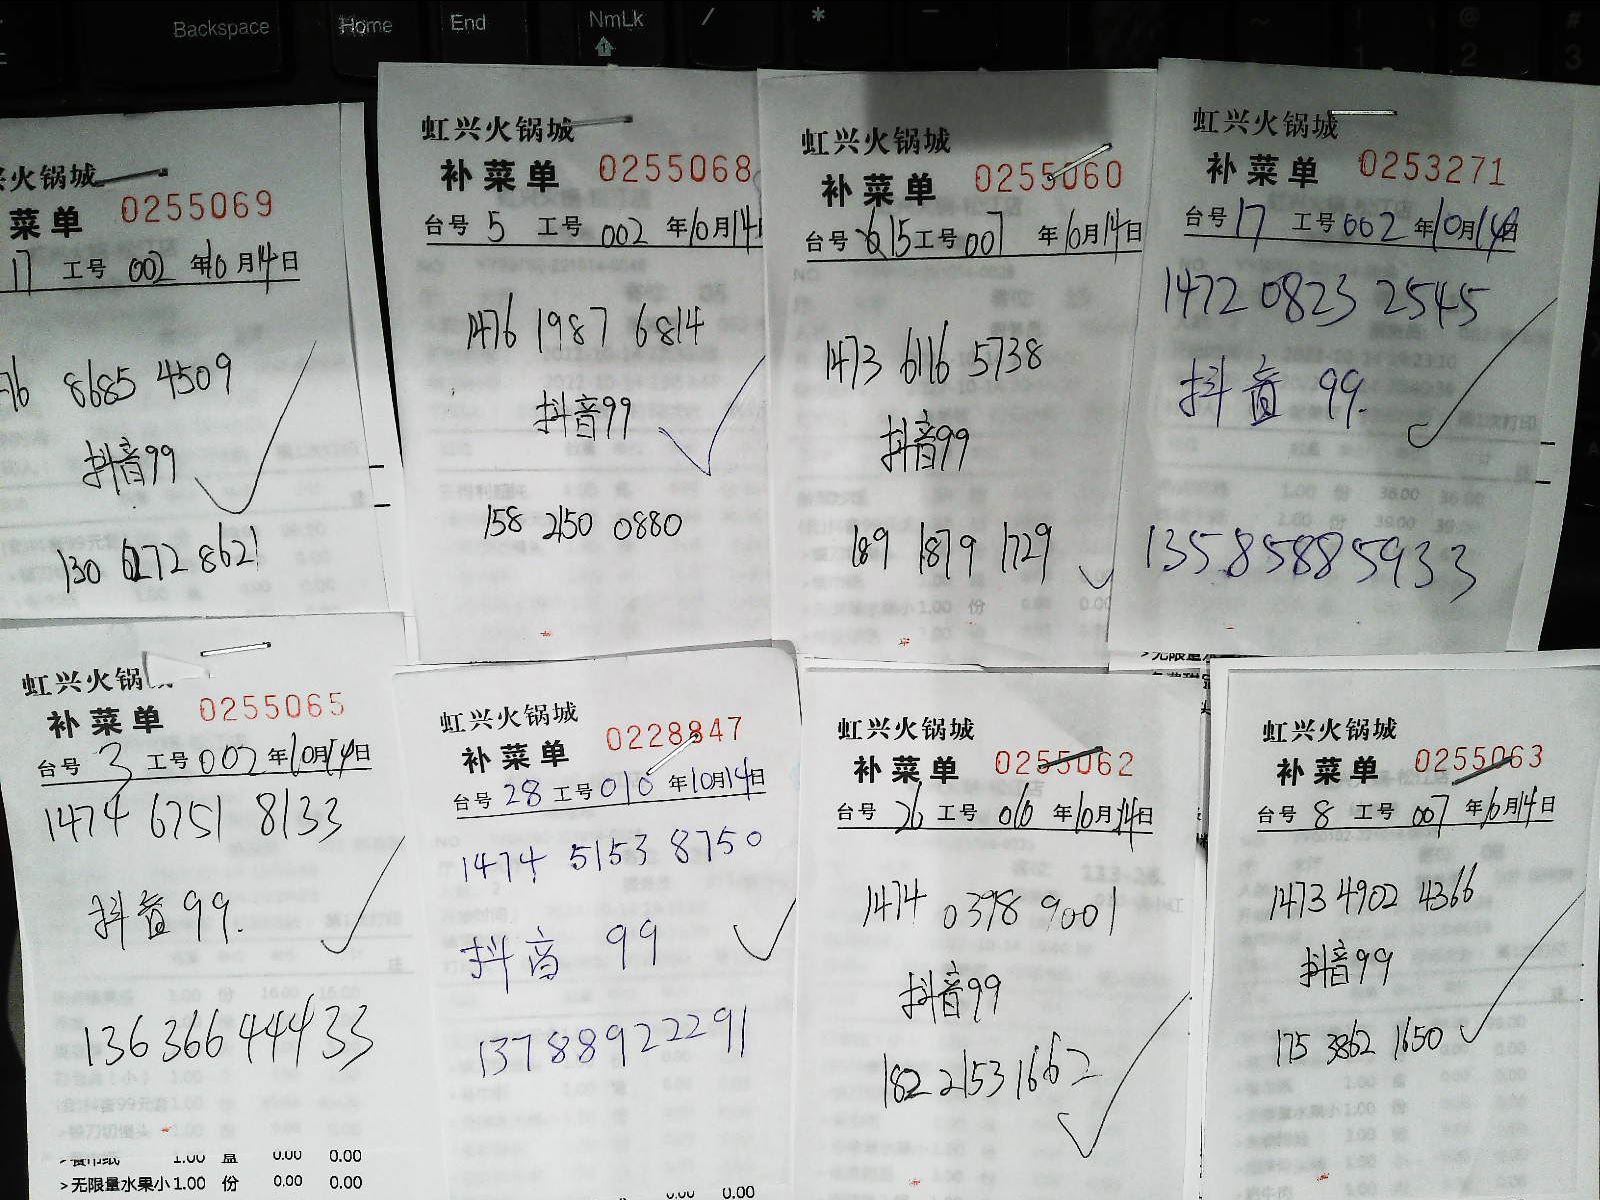 Backspace Home End NmLk / *
兴火锅城
菜单 0255069
17 工号 002 年10月14日
76 8685 4509
抖音99
130 6272 8621
虹兴火锅城
补菜单 0255068
台号 5 工号 002 年10月14
1476 1987 6814
抖音99
158 2150 0880
虹兴火锅城
补菜单 0255060
台号 15 工号 007 年10月14日
1473 6116 5738
抖音99
189 1879 1729
虹兴火锅城
补菜单 0253271
台号 17 工号 002 年10月14日
1472 0823 2545
抖音 99.
13585885933
虹兴火锅城
补菜单 0255065
台号 3 工号 002 年10月14日
1474 6751 8133
抖音 99.
13636644433
>餐巾纸 1.00 盒 0.00 0.00
>无限量水果小 1.00 份 0.00 0.00
虹兴火锅城
补菜单 0228847
台号 28 工号 010 年10月14日
1474 5153 8750
抖音 99
13788922291
0.00 0.00
虹兴火锅城
补菜单 0255062
台号 26 工号 010 年10月14日
1474 0398 9001
抖音99
182 2153 1662
虹兴火锅城
补菜单 0255063
台号 8 工号 007 年10月14日
1473 4902 4366
抖音99
175 3862 1650